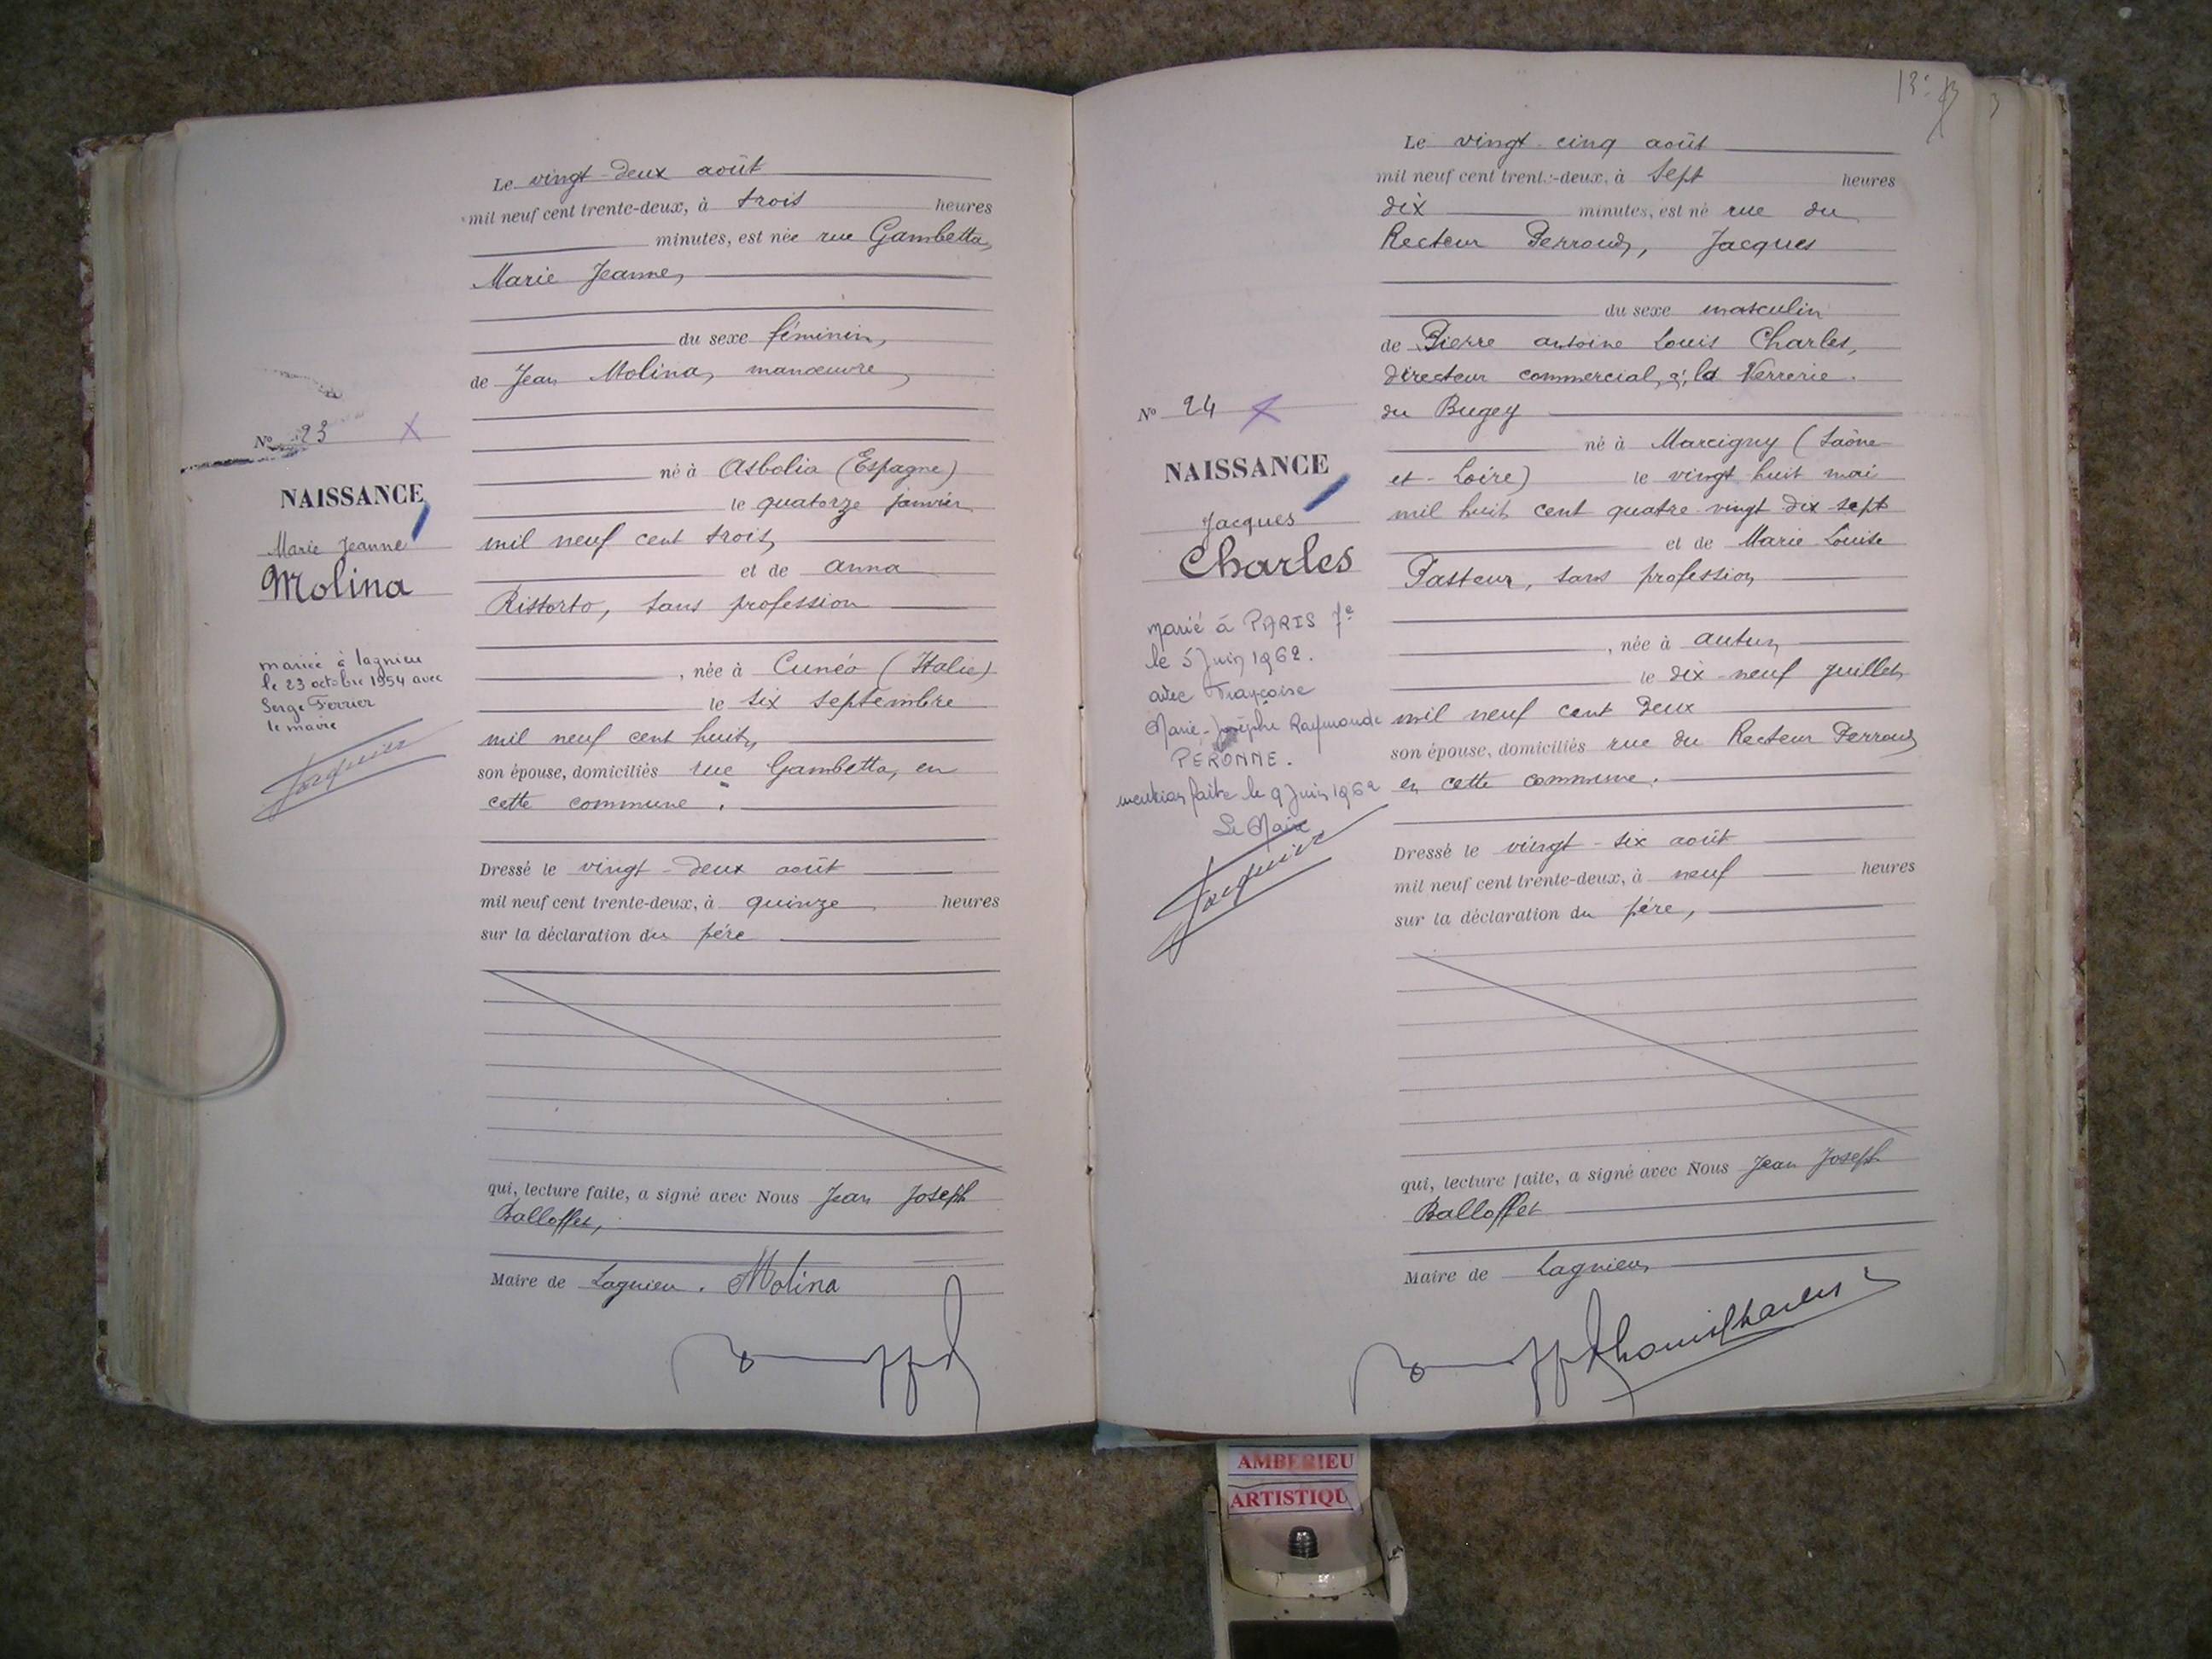 Le vingt-deux août
mil neuf cent trente-deux, à trois heures
minutes, est née rue Gambetta,
Marie Jeanne,
du sexe féminin,
de Jean Molina, manœuvre,
né à Asbolia (Espagne)
le quatorze janvier
mil neuf cent trois,
et de Anna
Ristorto, sans profession
, née à Cunéo (Italie)
le six septembre
mil neuf cent huit,
son épouse, domiciliés rue Gambetta, en
cette commune.
Dressé le vingt-deux août
mil neuf cent trente-deux, à quinze heures
sur la déclaration du père
qui, lecture faite, a signé avec Nous Jean Joseph
Balloffet,
Maire de Lagnieu. Molina
N° 23 X
NAISSANCE
Marie Jeanne
Molina
mariée à Lagnieu
le 23 octobre 1954 avec
Serge Ferrier
le maire
Le vingt-cinq août
mil neuf cent trente-deux, à sept heures
dix minutes, est né rue du
Recteur Perroud, Jacques
du sexe masculin
de Pierre Antoine Louis Charles,
directeur commercial à la Verrerie
du Bugey
né à Marcigny (Saône
et-Loire) le vingt huit mai
mil huit cent quatre-vingt dix-sept
et de Marie Louise
Pasteur, sans profession
, née à Autun
le dix-neuf juillet
mil neuf cent deux
son épouse, domiciliés rue du Recteur Perroud
en cette commune.
Dressé le vingt-six août
mil neuf cent trente-deux, à neuf heures
sur la déclaration du père,
qui, lecture faite, a signé avec Nous Jean Joseph
Balloffet
Maire de Lagnieu
N° 24 X
NAISSANCE
Jacques
Charles
marié à PARIS 7e
le 5 Juin 1962.
avec Françoise
Marie-Josèphe Raymonde
PERONNE.
mention faite le 9 Juin 1962
Le Maire
AMBERIEU
ARTISTIQU